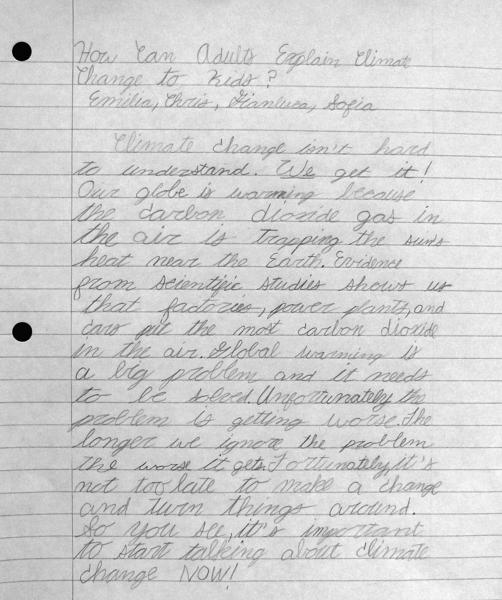 How Can Adults Explain Climate
Change to Kids?
Emilia, Chris, Gianluca, Sofia
Climate change isn't hard
to understand. We get it!
Our globe is warming because
the carbon dioxide gas in
the air is trapping the sun's
heat near the Earth. Evidence
from scientific studies shows us
that factories, power plants, and
cars put the most carbon dioxide
in the air. Global warming is
a big problem and it needs
to be solved. Unfortunately the
problem is getting worse. The
longer we ignore the problem
the worse it gets. Fortunately, it's
not too late to make a change
and turn things around.
So you see, it's important
to start talking about climate
change NOW!